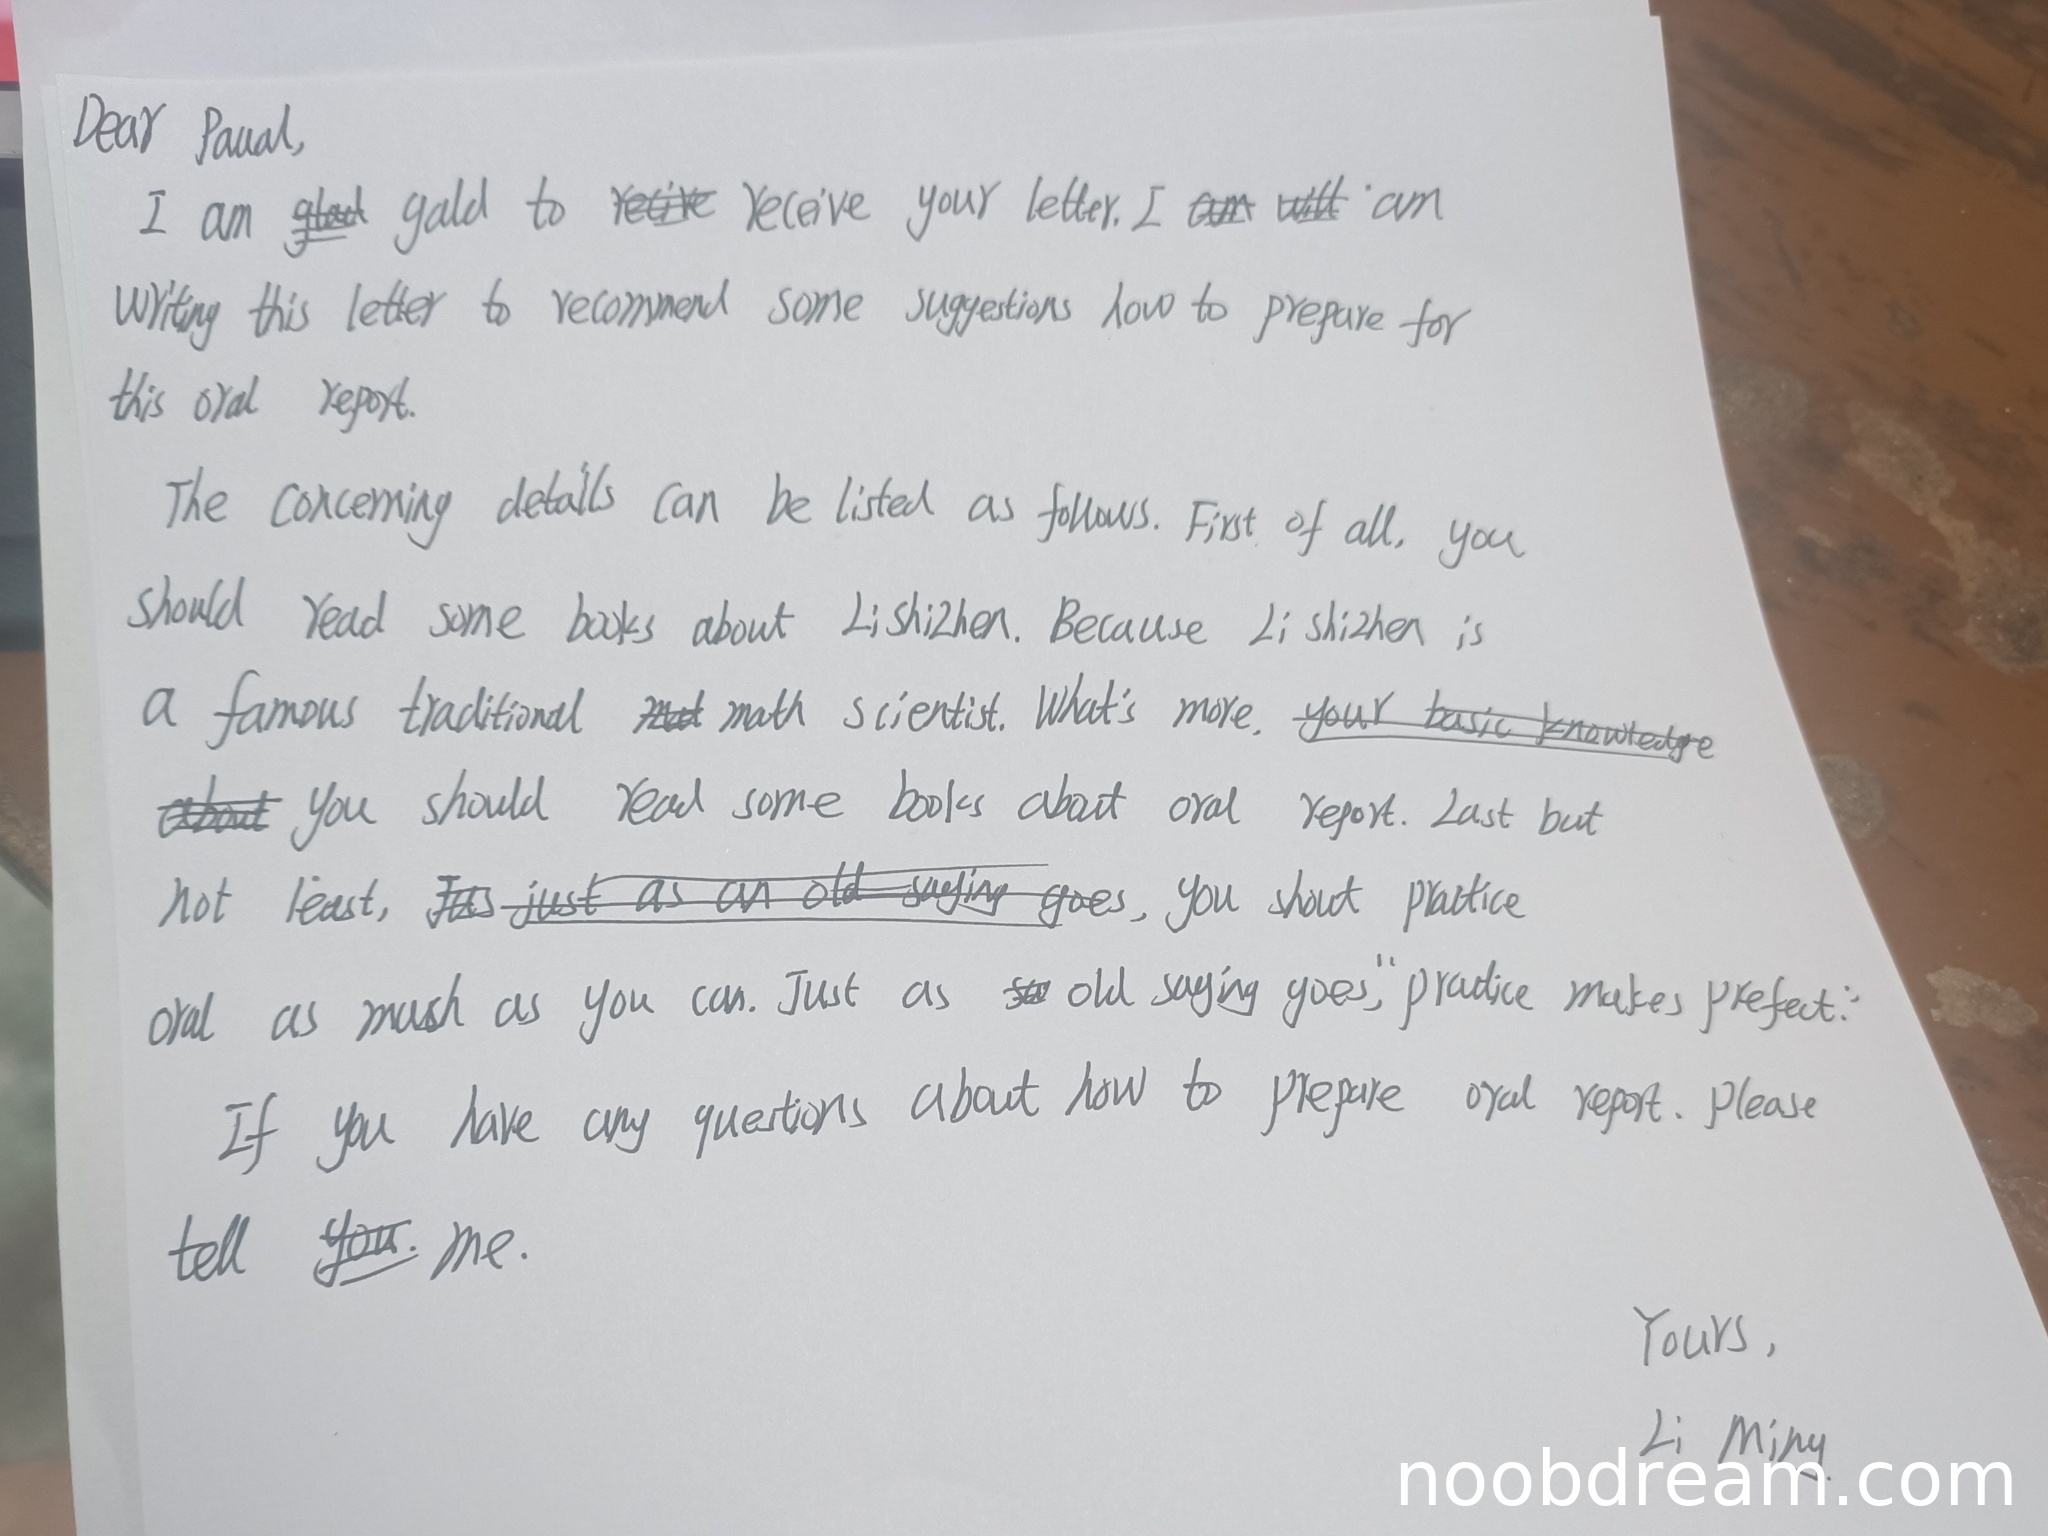 Dear Paual,
I am glad gald to recive receive your letter. I am will am
writing this letter to recommend some suggestions how to prepare for
this oral report.
The concerning details can be listed as follows. First of all, you
should read some books about Lishizhen. Because Li shizhen is
a famous traditional mat math scientist. What's more, your basic knowledge
about you should read some books about oral report. Last but
not least, just as an old saying goes, you shout practice
oral as mush as you can. Just as old saying goes, "practice makes prefect."
If you have any questions about how to prepare oral report. Please
tell you. me.
Yours,
Li Ming
noobdream.com